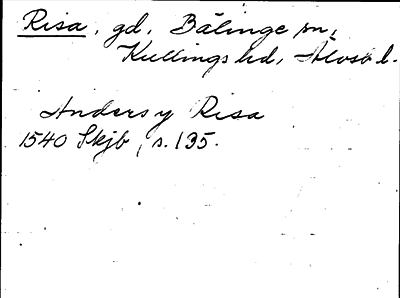 Risa, gd, Bälinge sn,
Kullings hd, Älvsb l.
Anders y Risa
1540 Skjb, s. 135.